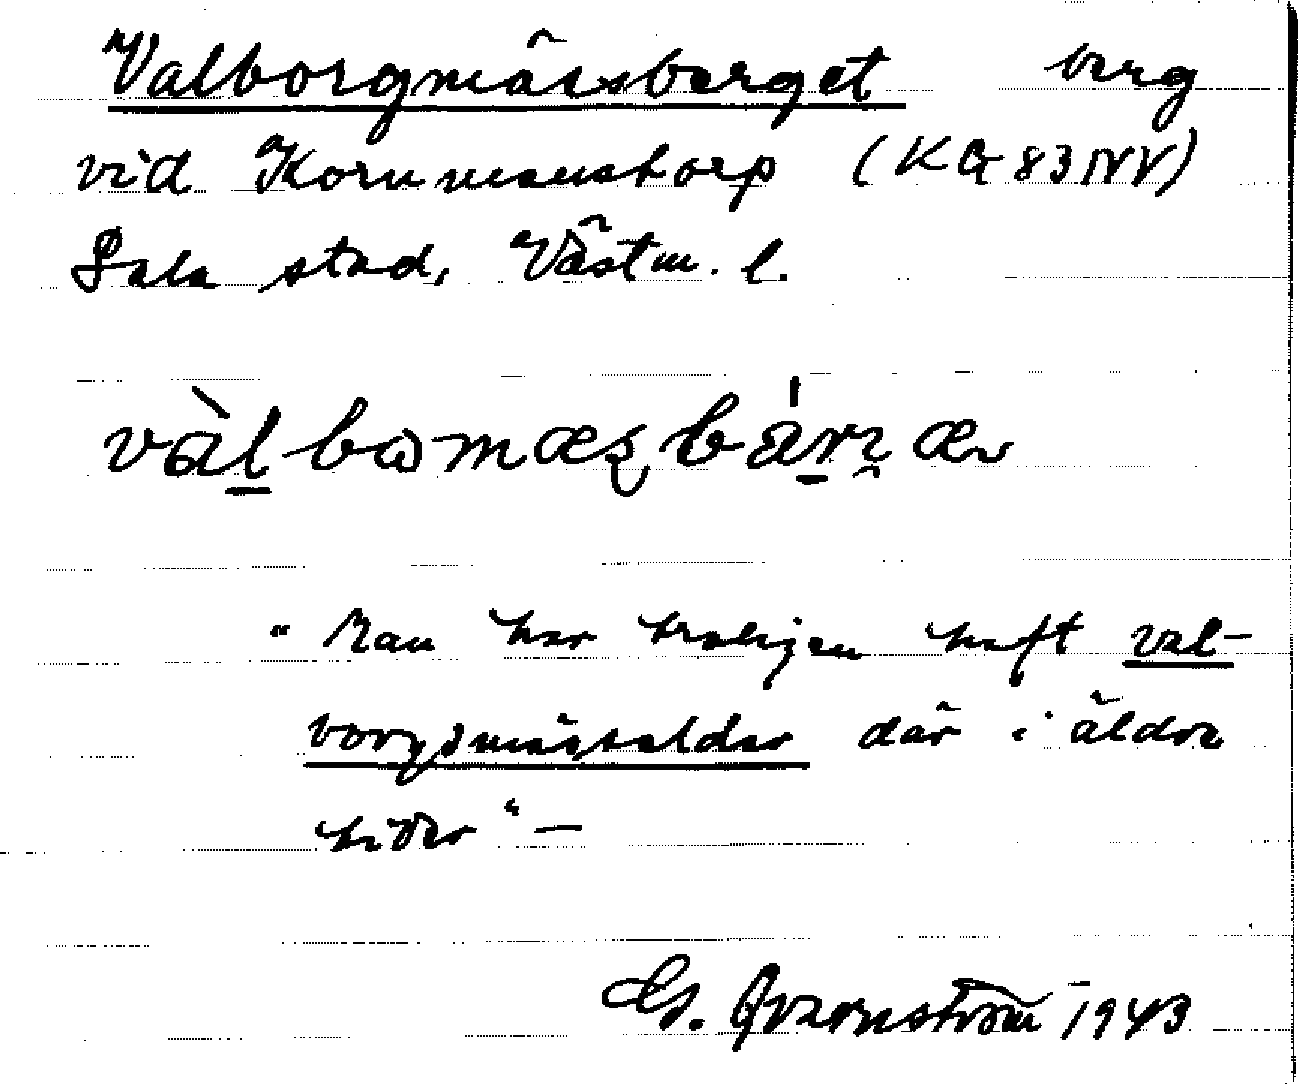 Valborgmässberget berg
vid Kornmanstorp (KG 83 NV)
Sala stad, Västm. l.
vàḻbωmæʂbá̱rɲ̣æ
"Man har troligen haft val-
borgsmässeldar där i äldre
tider" –
G. Qvarnström 1943